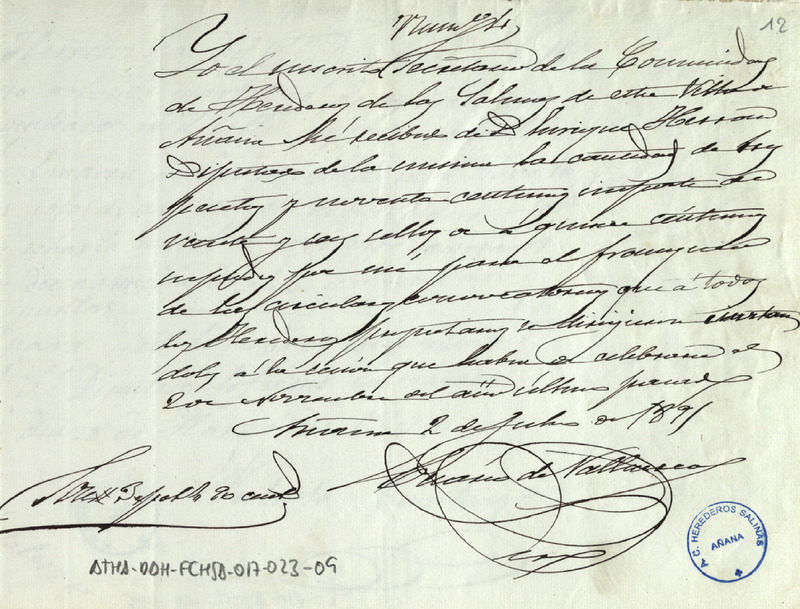 12
Yo el suscrito Secretario de la Comunidad
de Herederos de las Salinas de esta Villa de
Añana he recibido de D Enrique Herran
Diputado de la misma la cantidad de tres
pesetas y noventa centimos importe de
veinte y seis sellos de á quince céntimos
por mi para el franqueo
de las circulares convocatorias que á todos
los Herederos propietarios se dirigieron invitan
doles á la sesion que habia de celebrarse el
2 de Noviembre del año último pasado
Añana 2 de Julio de 1891
de
Son 3 pts 90 cents
ATHA-DAH-FCHSA-017-023-09
A. C. HEREDEROS SALINAS
AÑANA